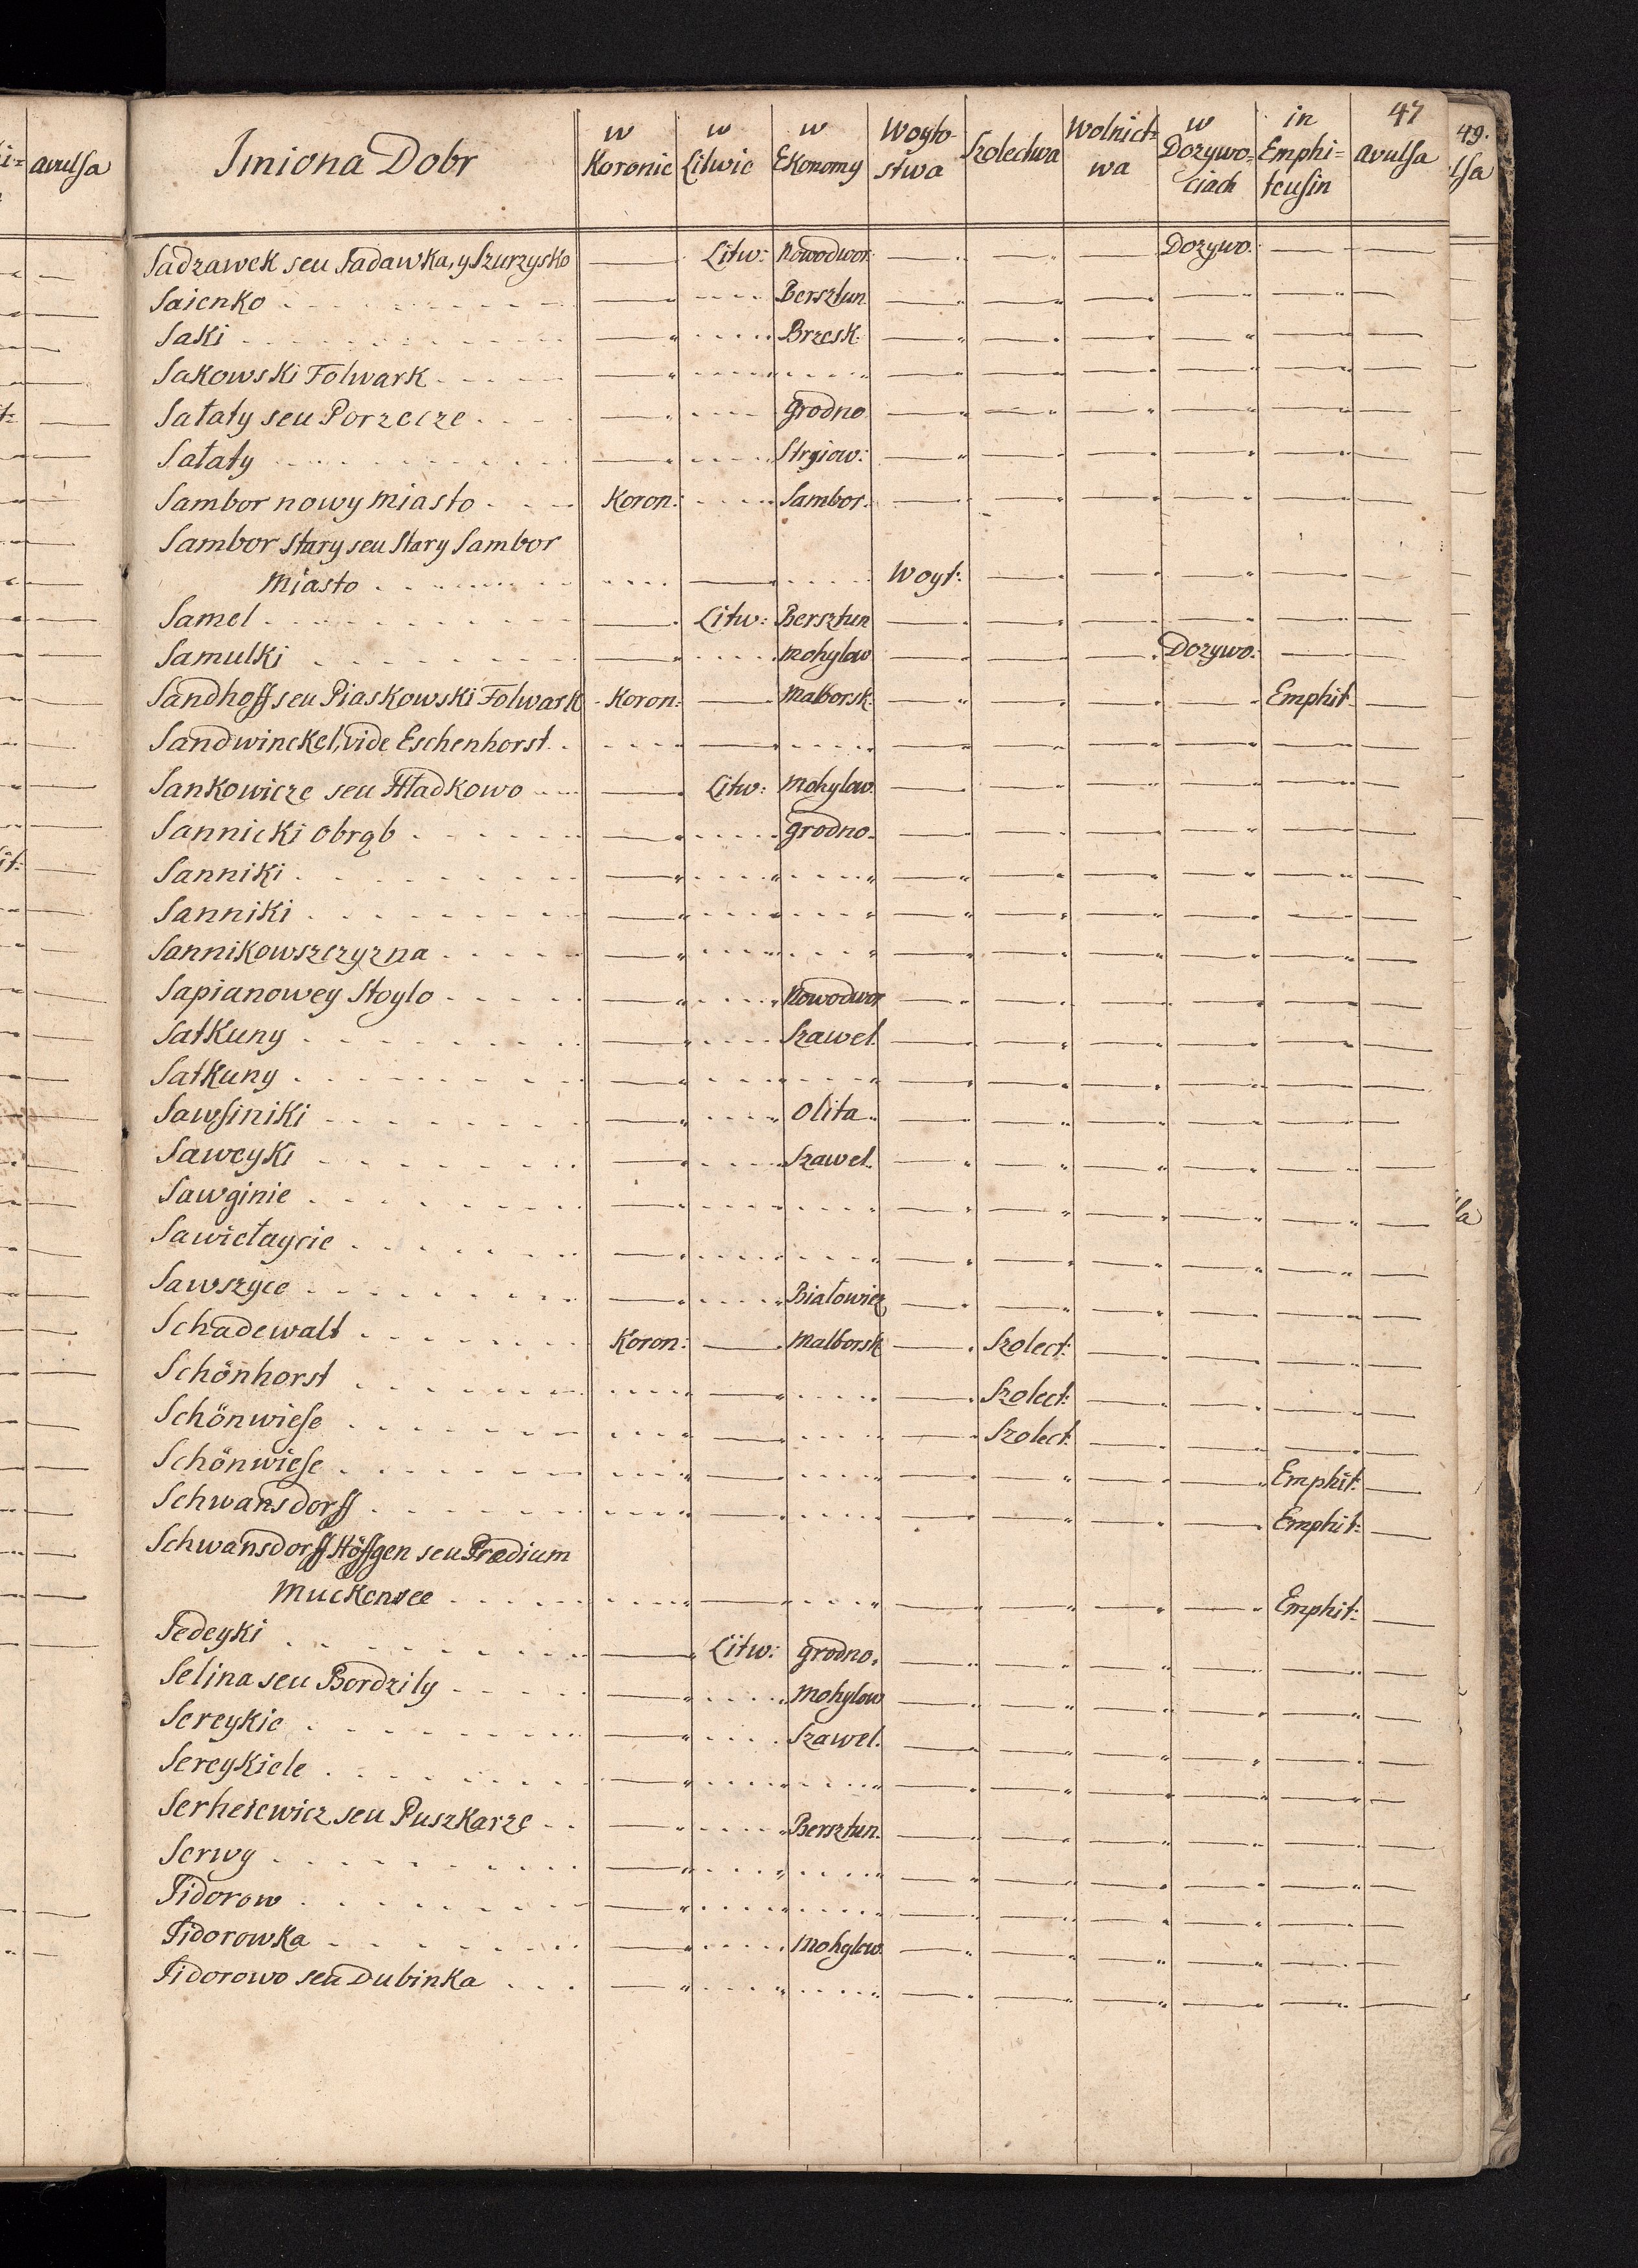 47
Imiona Dobr | w Koronie | w Litwie | w Ekonomy | Woyto-stwa | Szolectwa | Wolnict=wa | w Dozywo=ciach | in Emphi=teusin | avulsa
Sadzawek seu Sadawka, y Szurzysko — Litw: Nowodwor. — — — Dozywo: — —
Saienko — . . . . Bersztun — — — — — —
Saki — . . . . Brzesk. — — — — — —
Sakowski Folwark — . . . . . . . . — — — — — —
Sałaty seu Porzecze — . . . . Grodno — — — — — —
Sałaty — . . . . Stryiow: — — — — — —
Sambor nowy miasto Koron: . . . . Sambor. — — — — — —
Sambor Stary seu Stary Sambor
Miasto . . . . — . . . . Woyt: — — — — —
Samel — Litw: Bersztun — — — — — —
Samulki — . . . . Mohylow — — — Dozywo: — —
Sandhoff seu Piaskowski Folwark Koron: — Malborsk: — — — — Emphit —
Sandwinckel, vide Eschenhorst . . . . — . . . . — — — — — —
Sankowicze seu Hładkowo — Litw: Mohylow — — — — — —
Sannicki obrąb — . . . . Grodno. — — — — — —
Sanniki — . . . . . . . . — — — — — —
Sanniki — . . . . . . . . — — — — — —
Sannikowszczyzna — . . . . . . . . — — — — — —
Sapianowey Stoylo — . . . . Nowodwor — — — — — —
Satkuny — . . . . Szawel. — — — — — —
Satkuny — . . . . . . . . — — — — — —
Sawsiniki — . . . . Olita — — — — — —
Saweyki — . . . . Szawel. — — — — — —
Sawginie — . . . . . . . . — — — — — —
Sawiełaycie — . . . . . . . . — — — — — —
Sawszyce — . . . . Białowiez — — — — — —
Schadewalt Koron: — Malborsk — Szolect: — — — —
Schönhorst . . . . — . . . . — Szolect: — — — —
Schönwiese . . . . — . . . . — Szolect: — — — —
Schönwiese . . . . — . . . . — — — — Emphit: —
Schwansdorff . . . . — . . . . — — — — Emphit: —
Schwansdorff Höffgen seu Prædium
Muckensee . . . . — . . . . — — — — Emphit: —
Sedeyki — Litw: Grodno. — — — — — —
Selina seu Bordzily — . . . . Mohylow — — — — — —
Sereykie — . . . . Szawel. — — — — — —
Sereykiele — . . . . . . . . — — — — — —
Serheiewicz seu Puszkarze — . . . . Bersztun. — — — — — —
Serwy — . . . . . . . . — — — — — —
Sidorow — . . . . . . . . — — — — — —
Sidorowka — . . . . Mohylow. — — — — — —
Sidorowo seu Dubinka — . . . . . . . . — — — — — —
avulsa
49.